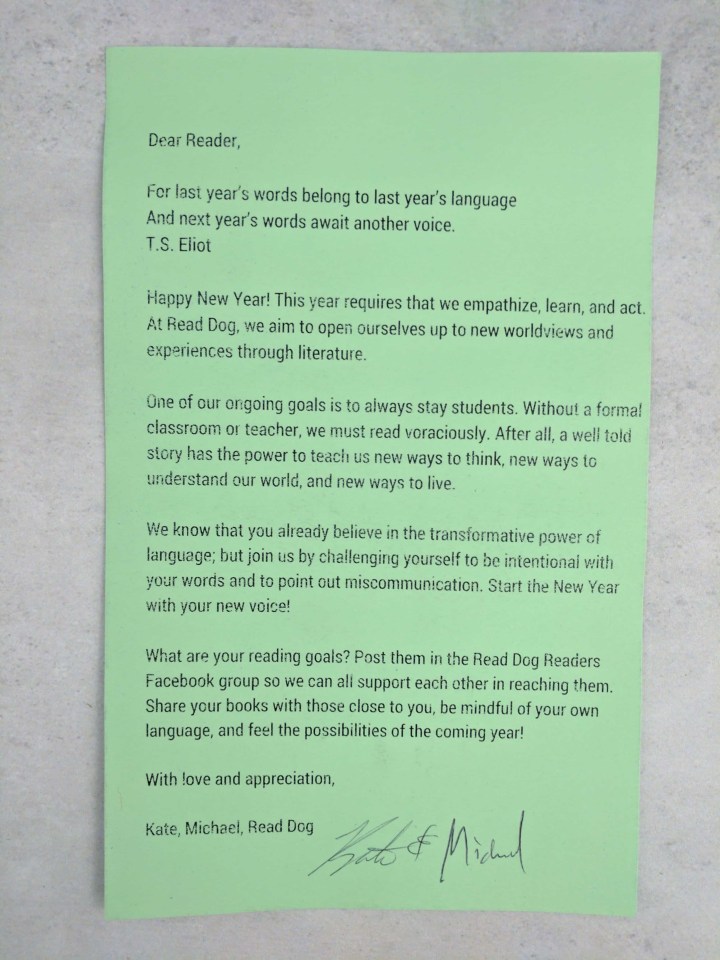 Dear Reader,
For last year's words belong to last year's language
And next year's words await another voice.
T.S. Eliot
Happy New Year! This year requires that we empathize, learn, and act.
At Read Dog, we aim to open ourselves up to new worldviews and
experiences through literature.
One of our ongoing goals is to always stay students. Without a formal
classroom or teacher, we must read voraciously. After all, a well told
story has the power to teach us new ways to think, new ways to
understand our world, and new ways to live.
We know that you already believe in the transformative power of
language; but join us by challenging yourself to be intentional with
your words and to point out miscommunication. Start the New Year
with your new voice!
What are your reading goals? Post them in the Read Dog Readers
Facebook group so we can all support each other in reaching them.
Share your books with those close to you, be mindful of your own
language, and feel the possibilities of the coming year!
With love and appreciation,
Kate, Michael, Read Dog
Kate & Michael